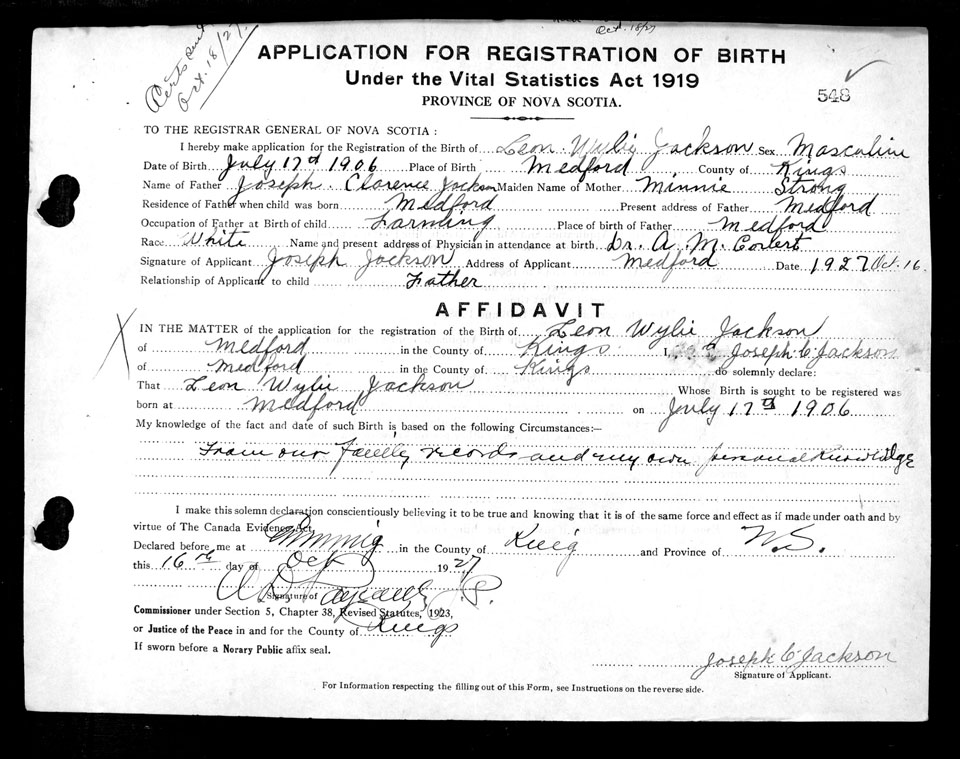 Certs sent
Oct. 18/27.
Oct. 18/27
APPLICATION FOR REGISTRATION OF BIRTH
Under the Vital Statistics Act 1919
PROVINCE OF NOVA SCOTIA.
548
TO THE REGISTRAR GENERAL OF NOVA SCOTIA:
I hereby make application for the Registration of the Birth of Leon Wylie Jackson Sex Masculine
Date of Birth July 17th 1906 Place of Birth Medford County of Kings
Name of Father Joseph Clarence Jackson Maiden Name of Mother Minnie Strong
Residence of Father when child was born Medford Present address of Father Medford
Occupation of Father at Birth of child Farming Place of birth of Father Medford
Race White Name and present address of Physician in attendance at birth Dr. A. M.
Signature of Applicant Joseph Jackson Address of Applicant Medford Date 1927 Oct. 16.
Relationship of Applicant to child Father
AFFIDAVIT
IN THE MATTER of the application for the registration of the Birth of Leon Wylie Jackson
of Medford in the County of Kings I, Joseph C Jackson
of Medford in the County of Kings do solemnly declare:
That Leon Wylie Jackson Whose Birth is sought to be registered was
born at Medford on July 17th 1906
My knowledge of the fact and date of such Birth is based on the following Circumstances:—
From our family records and my own personal knowledge
I make this solemn declaration conscientiously believing it to be true and knowing that it is of the same force and effect as if made under oath and by
virtue of The Canada Evidence Act.
Declared before me at in the County of King and Province of N.S.
this 16th day of Oct 1927
Signature of
Commissioner under Section 5, Chapter 38, Revised Statutes, 1923,
or Justice of the Peace in and for the County of Kings
If sworn before a Norary Public affix seal.
Joseph C Jackson
Signature of Applicant.
For Information respecting the filling out of this Form, see Instructions on the reverse side.